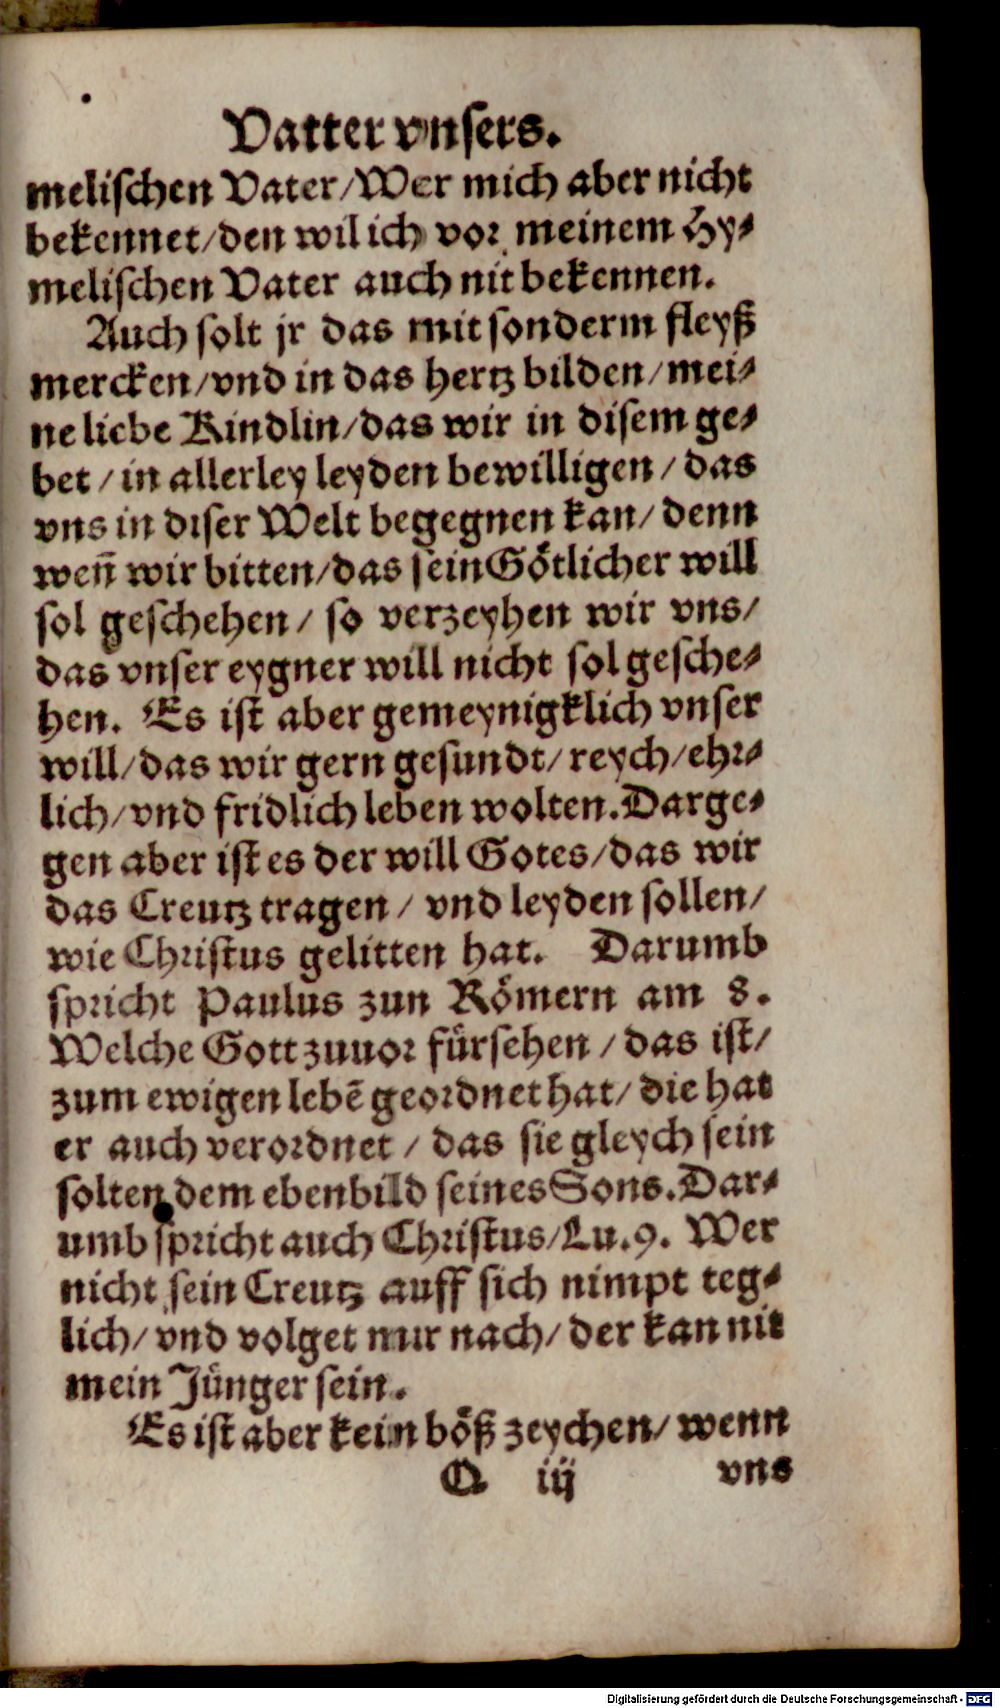 Vatter vnsers.
melischen Vater/Wer mich aber nicht
bekennet/den wil ich vor meinem Hy-
melischen Vater auch nit bekennen.
Auch solt jr das mit sonderm fleyß
mercken/vnd in das hertz bilden/mei-
ne liebe Kindlin/das wir in disem ge-
bet/in allerley leyden bewilligen/das
vns in diser Welt begegnen kan/denn
weñ wir bitten/das sein Götlicher will
sol geschehen/so verzeyhen wir vns/
das vnser eygner will nicht sol gesche-
hen. Es ist aber gemeynigklich vnser
will/das wir gern gesundt/reych/ehr-
lich/vnd fridlich leben wolten. Darge-
gen aber ist es der will Gotes/das wir
das Creutz tragen/vnd leyden sollen/
wie Christus gelitten hat. Darumb
spricht Paulus zun Römern am 8.
Welche Gott zuuor fürsehen/das ist/
zum ewigen lebẽ geordnet hat/die hat
er auch verordnet/das sie gleych sein
solten dem ebenbild seines Sons. Dar-
umb spricht auch Christus/Lu.9. Wer
nicht sein Creutz auff sich nimpt teg-
lich/vnd volget mir nach/der kan nit
mein Jünger sein.
Es ist aber kein böß zeychen/wenn
Q iij vns
Digitalisierung gefördert durch die Deutsche Forschungsgemeinschaft - DFG